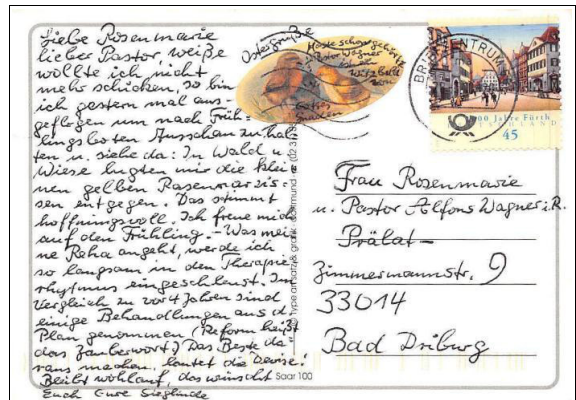 Liebe Rosenmarie
lieber Pastor, weiße
wollte ich nicht
mehr schicken, so bin
ich gestern mal aus-
geflogen um nach Früh-
lingsboten Ausschau zu hal-
ten u. siehe da: In Wald u.
Wiese lugten mir die klei-
nen gelben Rasennarzis-
sen entgegen. Das stimmt
hoffnungsvoll. Ich freue mich
auf den Frühling. – Was mei-
ne Reha angeht, werde ich
so langsam in den Therapie-
rhytmus eingeschleust. Im
Vergleich zu vor 4 Jahren sind
einige Behandlungen aus d.
Plan genommen (Reform heißt
das Zauberwort.) Das Beste da-
raus machen lautet die Devise!
Bleibt wohlauf, das wünscht
Euch Eure Sieglinde
Saar 100
Ostergrüße
Haste schon gehört
Pastor Wagner
BRIEFZENTRUM
1000 Jahre Fürth
DEUTSCHLAND
45
Frau Rosenmarie
u. Pastor Alfons Wagner i.R.
Prälat-
Zimmermannstr. 9
33014
Bad Driburg